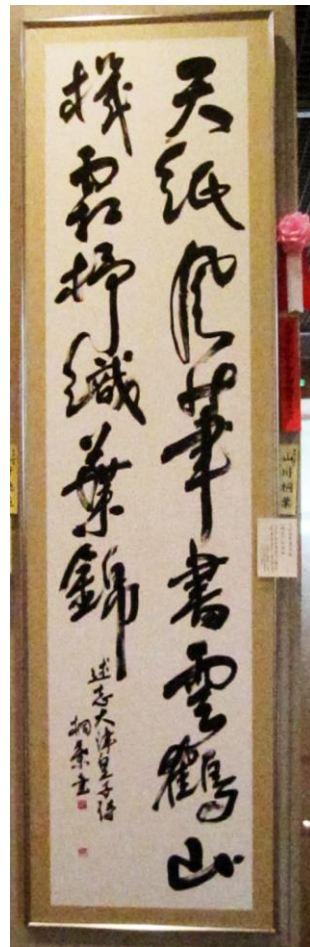 天紙風筆書雲鶴山
機霜杼織葉錦
述志大津皇子詩
桐葉書
山川桐葉